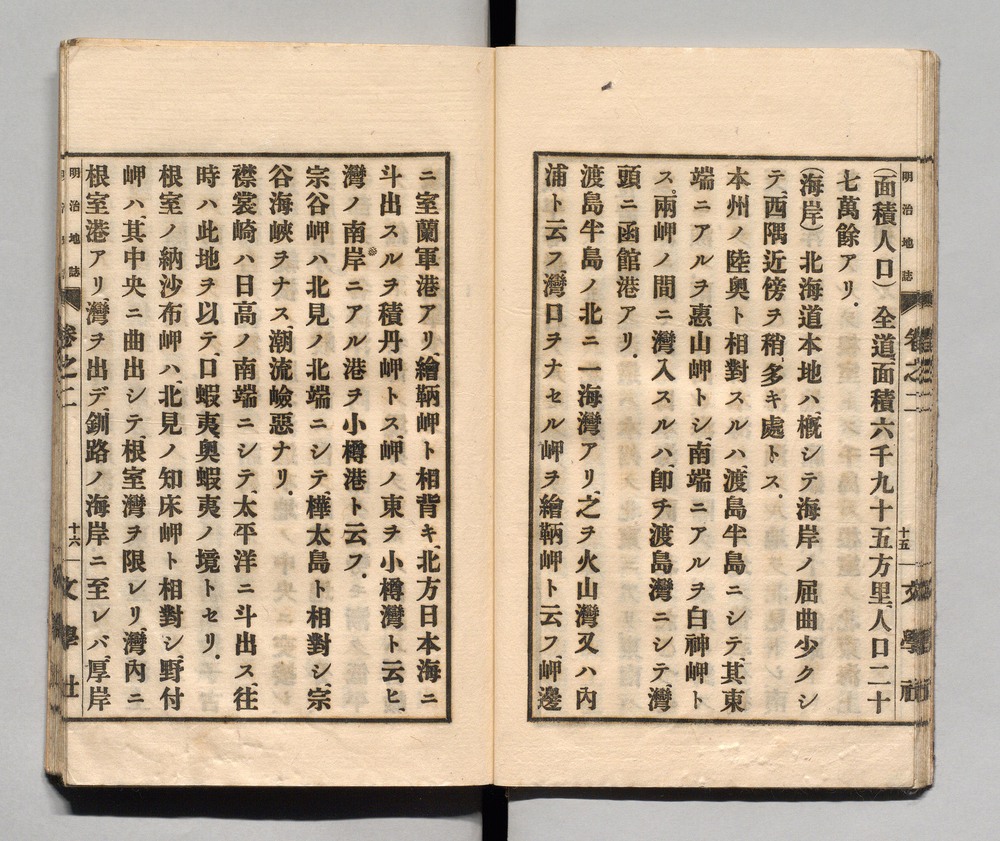 明治地誌 卷之二 十五 文學社
(面積人口) 全道、面積六千九十五方里、人口二十
七萬餘アリ.
(海岸) 北海道本地ハ、概シテ海岸ノ屈曲少クシ
テ、西隅近傍ヲ稍、多キ處トス.
本州ノ陸奧ト相對スルハ、渡島半島ニシテ、其東
端ニアルヲ惠山岬トシ、南端ニアルヲ白神岬ト
ス。兩岬ノ間ニ灣入スルハ、卽チ渡島灣ニシテ、灣
頭ニ函館港アリ.
渡島半島ノ北ニ一海灣アリ、之ヲ火山灣又ハ內
浦ト云フ、灣口ヲナセル岬ヲ繪鞆岬ト云フ、岬邊
ニ室蘭軍港アリ、繪鞆岬ト相背キ、北方日本海ニ
斗出スルヲ積丹岬トス、岬ノ東ヲ小樽灣ト云ヒ、
灣ノ南岸ニアル港ヲ小樽港ト云フ.
宗谷岬ハ北見ノ北端ニシテ、樺太島ト相對シ、宗
谷海峽ヲナス、潮流嶮惡ナリ.
襟裳崎ハ日高ノ南端ニシテ、太平洋ニ斗出ス、往
時ハ此地ヲ以テ、口蝦夷、奧蝦夷ノ境トセリ.
根室ノ納沙布岬ハ、北見ノ知床岬ト相對シ、野付
岬ハ、其中央ニ曲出シテ、根室灣ヲ限レリ、灣內ニ
根室港アリ、灣ヲ出デ、釧路ノ海岸ニ至レバ、厚岸
明治地誌 卷之二 十六 文學社